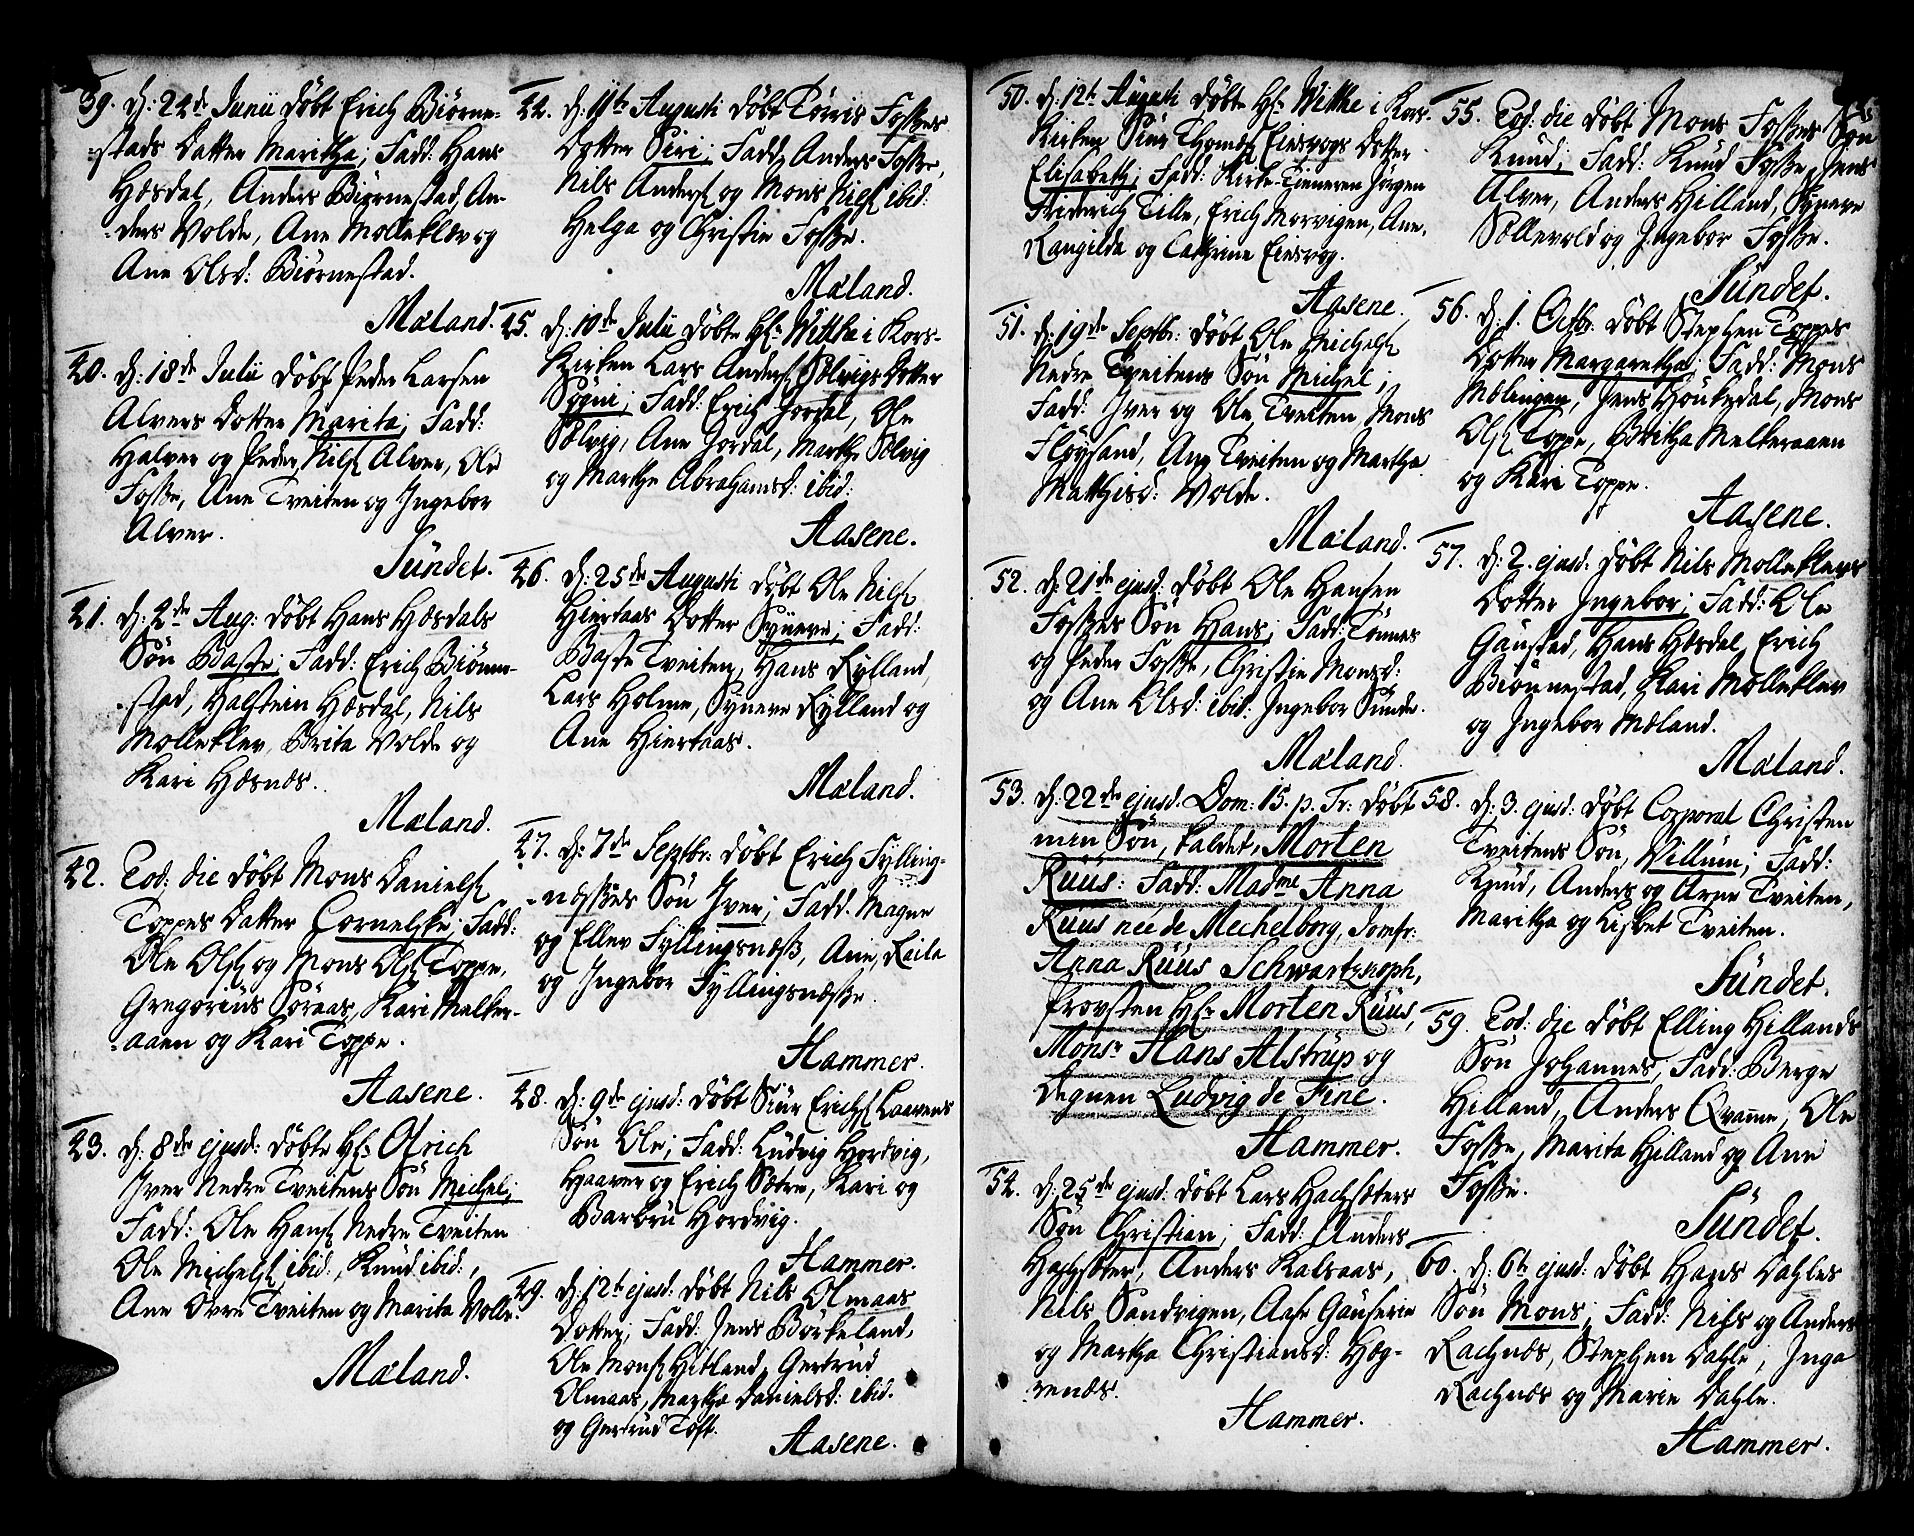 39. D: 24de Junii døbt Erich Biørne-
stads Datter Maritha; Fadd: Hans
Hæsdal, Anders Biørnestad, An-
ders Volde, Ane Molleklev og
Ane Olsd: Biørnestad.
Mæland.
40. D: 18de Julii døbt Peder Larsen
Alvers Dotter Marita; Fadd:
Halver og Peder Nilss Alver, Ole
Fosse, Ane Tveiten og Ingebor
Alver.
Sündet.
41. D: 2de Aug: døbt Hans Hæsdals
Søn Basse; Fadd: Erich Biørne-
stad, Halstein Hæsdal, Nils
Mollekler, Brita Volde og
Kari Hæsnæs.
Mæland.
42. Eod: die døbt Mons Danielss
Toppes Datter Cornelske; Fadd:
Ole Olss og Mons Olss Toppe,
Gregorius Søraas, Kari Melker-
aaen og Kari Toppe.
Aasene.
43. D: 8de ejusd: døbte Hr. Olrich
Iver Nedre Tveitens Søn Michel;
Fadd: Ole Hanss Nedre Tveiten
Ole Michelss ibid:, Knud ibid:,
Ane Øvre Tveiten og Marita Volle.
Mæland.
44. D: 11te Augusti døbt Tørris Fosses
Dotter Siri; Fadd. Anders Fosse,
Nils Anderss og Mons Nilss ibid:
Helga og Christie Fosse.
Mæland.
45. D: 10de Julii døbte Hr. Witthe i Kors-
Kirken Lars Anderss Sølvigs Dotter
Søgni; Fadd: Erich Jordal, Ole
Sølvig, Ane Jordal, Marthe Sølvig
og Marthe Abrahamsd: ibid:
Aasene.
46. D: 25de Augusti døbt Ole Nilss
Hiertaas Dotter Synneve; Fadd:
Basse Tveiten, Hans Rylland,
Lars Holme, Synneve Rylland og
Ane Hiertaas.
Mæland.
47. D: 7de Septbr: døbt Erich Fylling-
næsses Søn Iver; Fadd. Magne
og Ellev Fyllingsnæss, Ane, Raila
og Ingebor Fyllingsnæsse.
Hammer.
48. D: 9de ejusd: døbt Siur Erichss Laavens
Søn Ole; Fadd: Ludvig Hordvig,
Haaver og Erich Sætre, Kari og
Barbru Hordvig.
Hammer.
49. D: 12t ejusd: døbt Nils Olmaas
Dotter; Fadd: Jens Børkeland,
Ole Monss Hitland, Gertrud
Olmaas, Martha Danielsd: ibid.
og Gertrud Toft.
Aasene.
50. D: 12t Augusti døbte Hr. Witthe i Kors-
Kirken Siur Thomæs Eensvogs Dotter
Elisabeth; Fadd: Kirke-Tieneren Jørgen
Friderich Tille, Erich Morvigen, Ane,
Rangilda og Cathrine Eensvog.
Aasene.
51. D: 19de Septbr: døbt Ole Michelss
Nedre Tveitens Søn Michel;
Fadd: Iver og Ole Tveiten Mons
Fløysand, Ane Tveiten og Martha
Matthisd: Volde.
Mæland.
52. D: 21de ejusd: døbt Ole Hansen
Fosses Søn Hans; Fadd: Tønnes
og Peder Fosse, Christie Monsd:
og Ane Olsd: ibid: Ingebor Sunde.
Mæland.
53. D: 22de ejusd. Dom: 15. p. Tr: døbt
min Søn, kaldet, Morten
Rüüs: Fadd: Madme Anna
Rüüs née de Mechelborg, Jomfr:
Anna Rüüs Schwartzkoph,
Provsten Hr. Morten Rüüs,
Monsr Hans Alstrüp og
Degnen Ludvig de Fine.
Hammer.
54. D: 25de ejusd: døbt Lars Hachsæters
Søn Christian; Fadd: Anders
Hachsæter, Anders Kalsaas,
Nils Sandvigen, Aase Gauserie
og Martha Christiansd: Hæg-
renæs.
Hammer.
55. Eod: die døbt Mons Fosses Søn
Knud; Fadd: Knud Fosse, Jens
Alver, Anders Hilland, Synneve
Sællevold og Ingebor Fosse.
Sündet.
56. D: 1. Octbr: døbt Stephen Toppes
Dotter Margaretha; Fadd: Mons
Mølingen, Jens Høukedal, Mons
Olss Toppe, Britha Melkeraaen
og Kari Toppe.
Aasene.
57. D: 2. ejusd. døbt Nils Molleklevs
Dotter Ingebor; Fadd: Ole
Gaustad, Hans Hæsdal, Erich
Biørnestad, Kari Molleklev
og Ingebor Mæland.
Mæland.
58. D: 3. ejusd: døbt Corporal Christen
Tveitens Søn, Villum; Fadd:
Knud, Anders og Arne Tveiten,
Maritha og Lisbet Tveiten.
Sündet.
59. Eod: die døbt Elling Hillands
Søn Johannes; Fadd: Berge
Hilland, Anders Qvamme, Ole
Fosse, Marita Hilland og Ane
Fosse.
Sündet.
60. D: 6t ejusd: døbt Hans Dahles
Søn Mons; Fadd: Nils og Anders
Rachnæs, Stephen Dahle, Inga
Rachnæs og Marie Dahle.
Hammer.